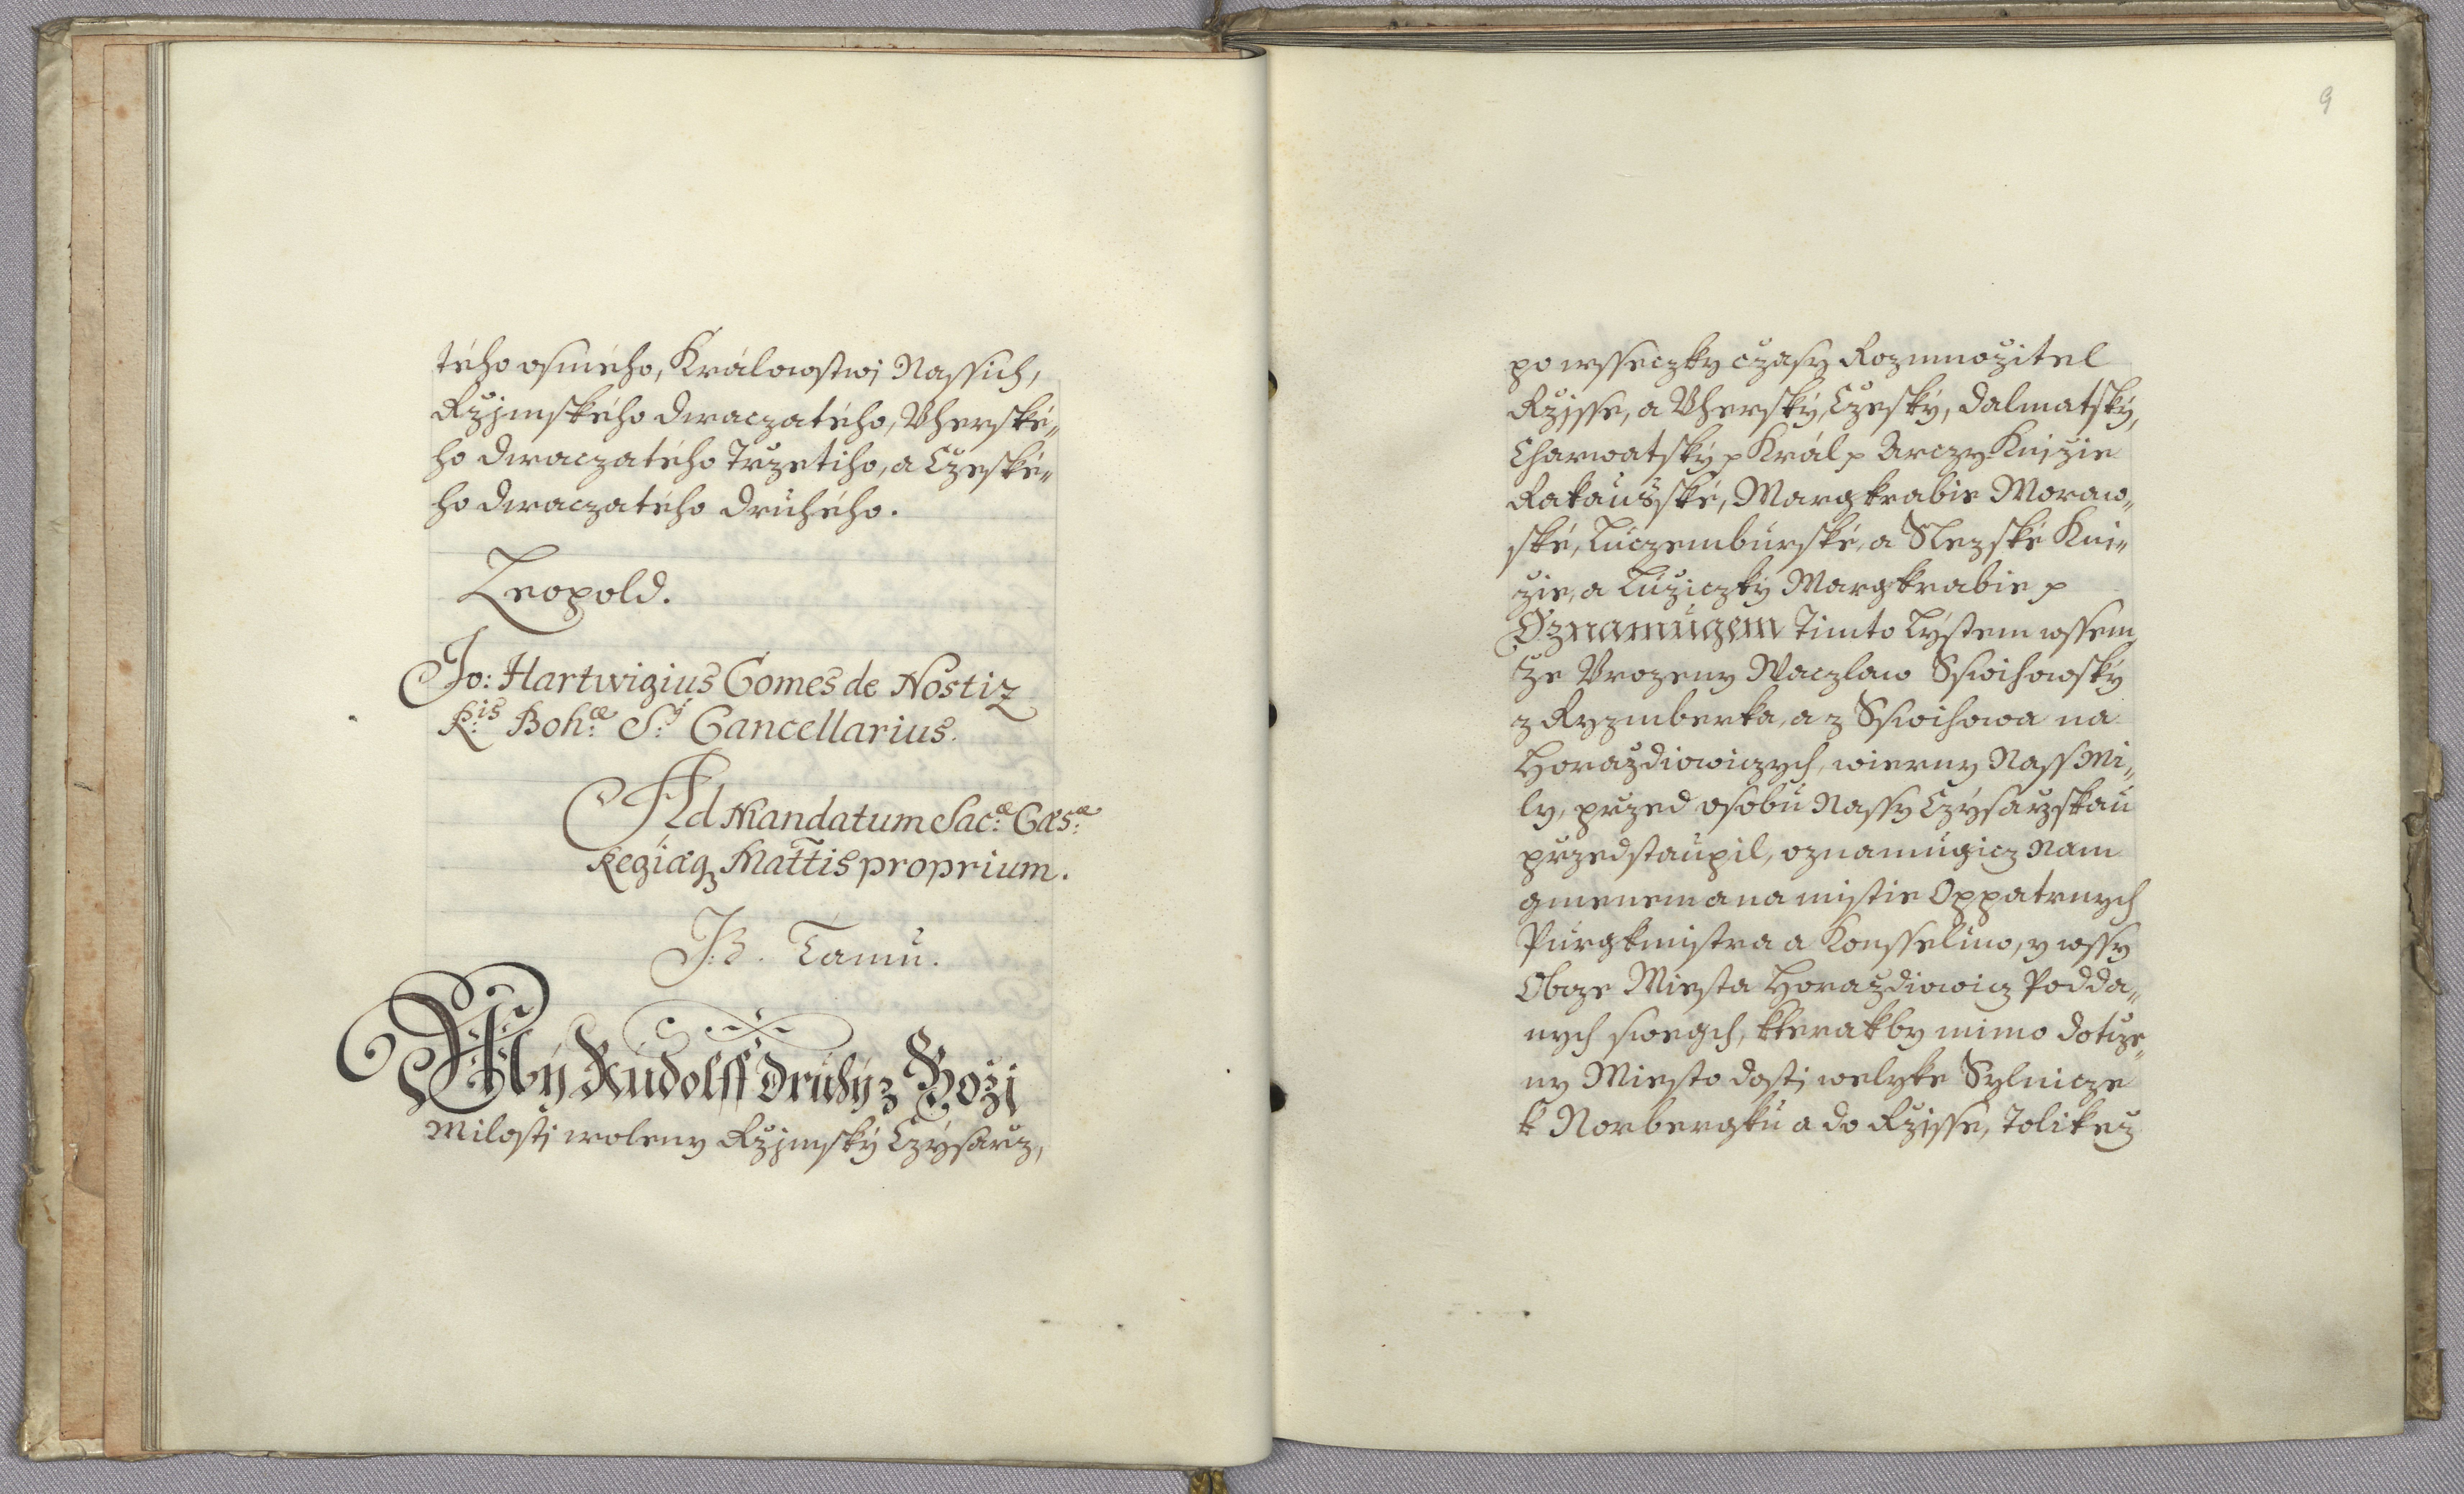 tého osmého, Králowstwj Nassich,
Rzjmského dwaczatého, Vherské„
ho dwaczatého Trzetiho, a Czeské„
ho dwaczatého druhého.
Leopold.
Jo: Hartwigius Comes de Nostiz
R:is Boh:æ S: Cancellarius.
Ad Mandatum Sac:æ Cæs:æ
Regiæq3 Mattis proprium.
Tamů.
My Rudolff Druhý z Boži
Milosti woleny Rzjmský Czýsarz,
9
po wsseczky cžasy Rozmnožitel
Ržjsse, a Vherský, Czeský, Dalmatský,
Charwatský p Král p Arczy Knjzie
Rakauské, Margkrabie Moraw„
ské, Luczemburské, a Slezské Knj„
zie, a Lužiczký Margkrabie p
Oznamugem Timto Lÿstem wssem,
že Vrozeny Waczlaw Sswihowský
z Ryzmberka, a z Sswihowa na
Horaždiowiczych, wierny Nass Mi„
ly, pržed osobu Nassy Czýsaržskau
pržedstaupil, oznamugicz Nam
gmenem a na mistie Oppatrnych
Purgkmistra a Konsseluw, y wssy
Obcze Miesta Horaždiowicz Podda„
nych swegch, kterakby mimo dotcze„
ny Miesto dosti welyke Sylnicze
k Norbergku a do Ržjsse, Tolikež